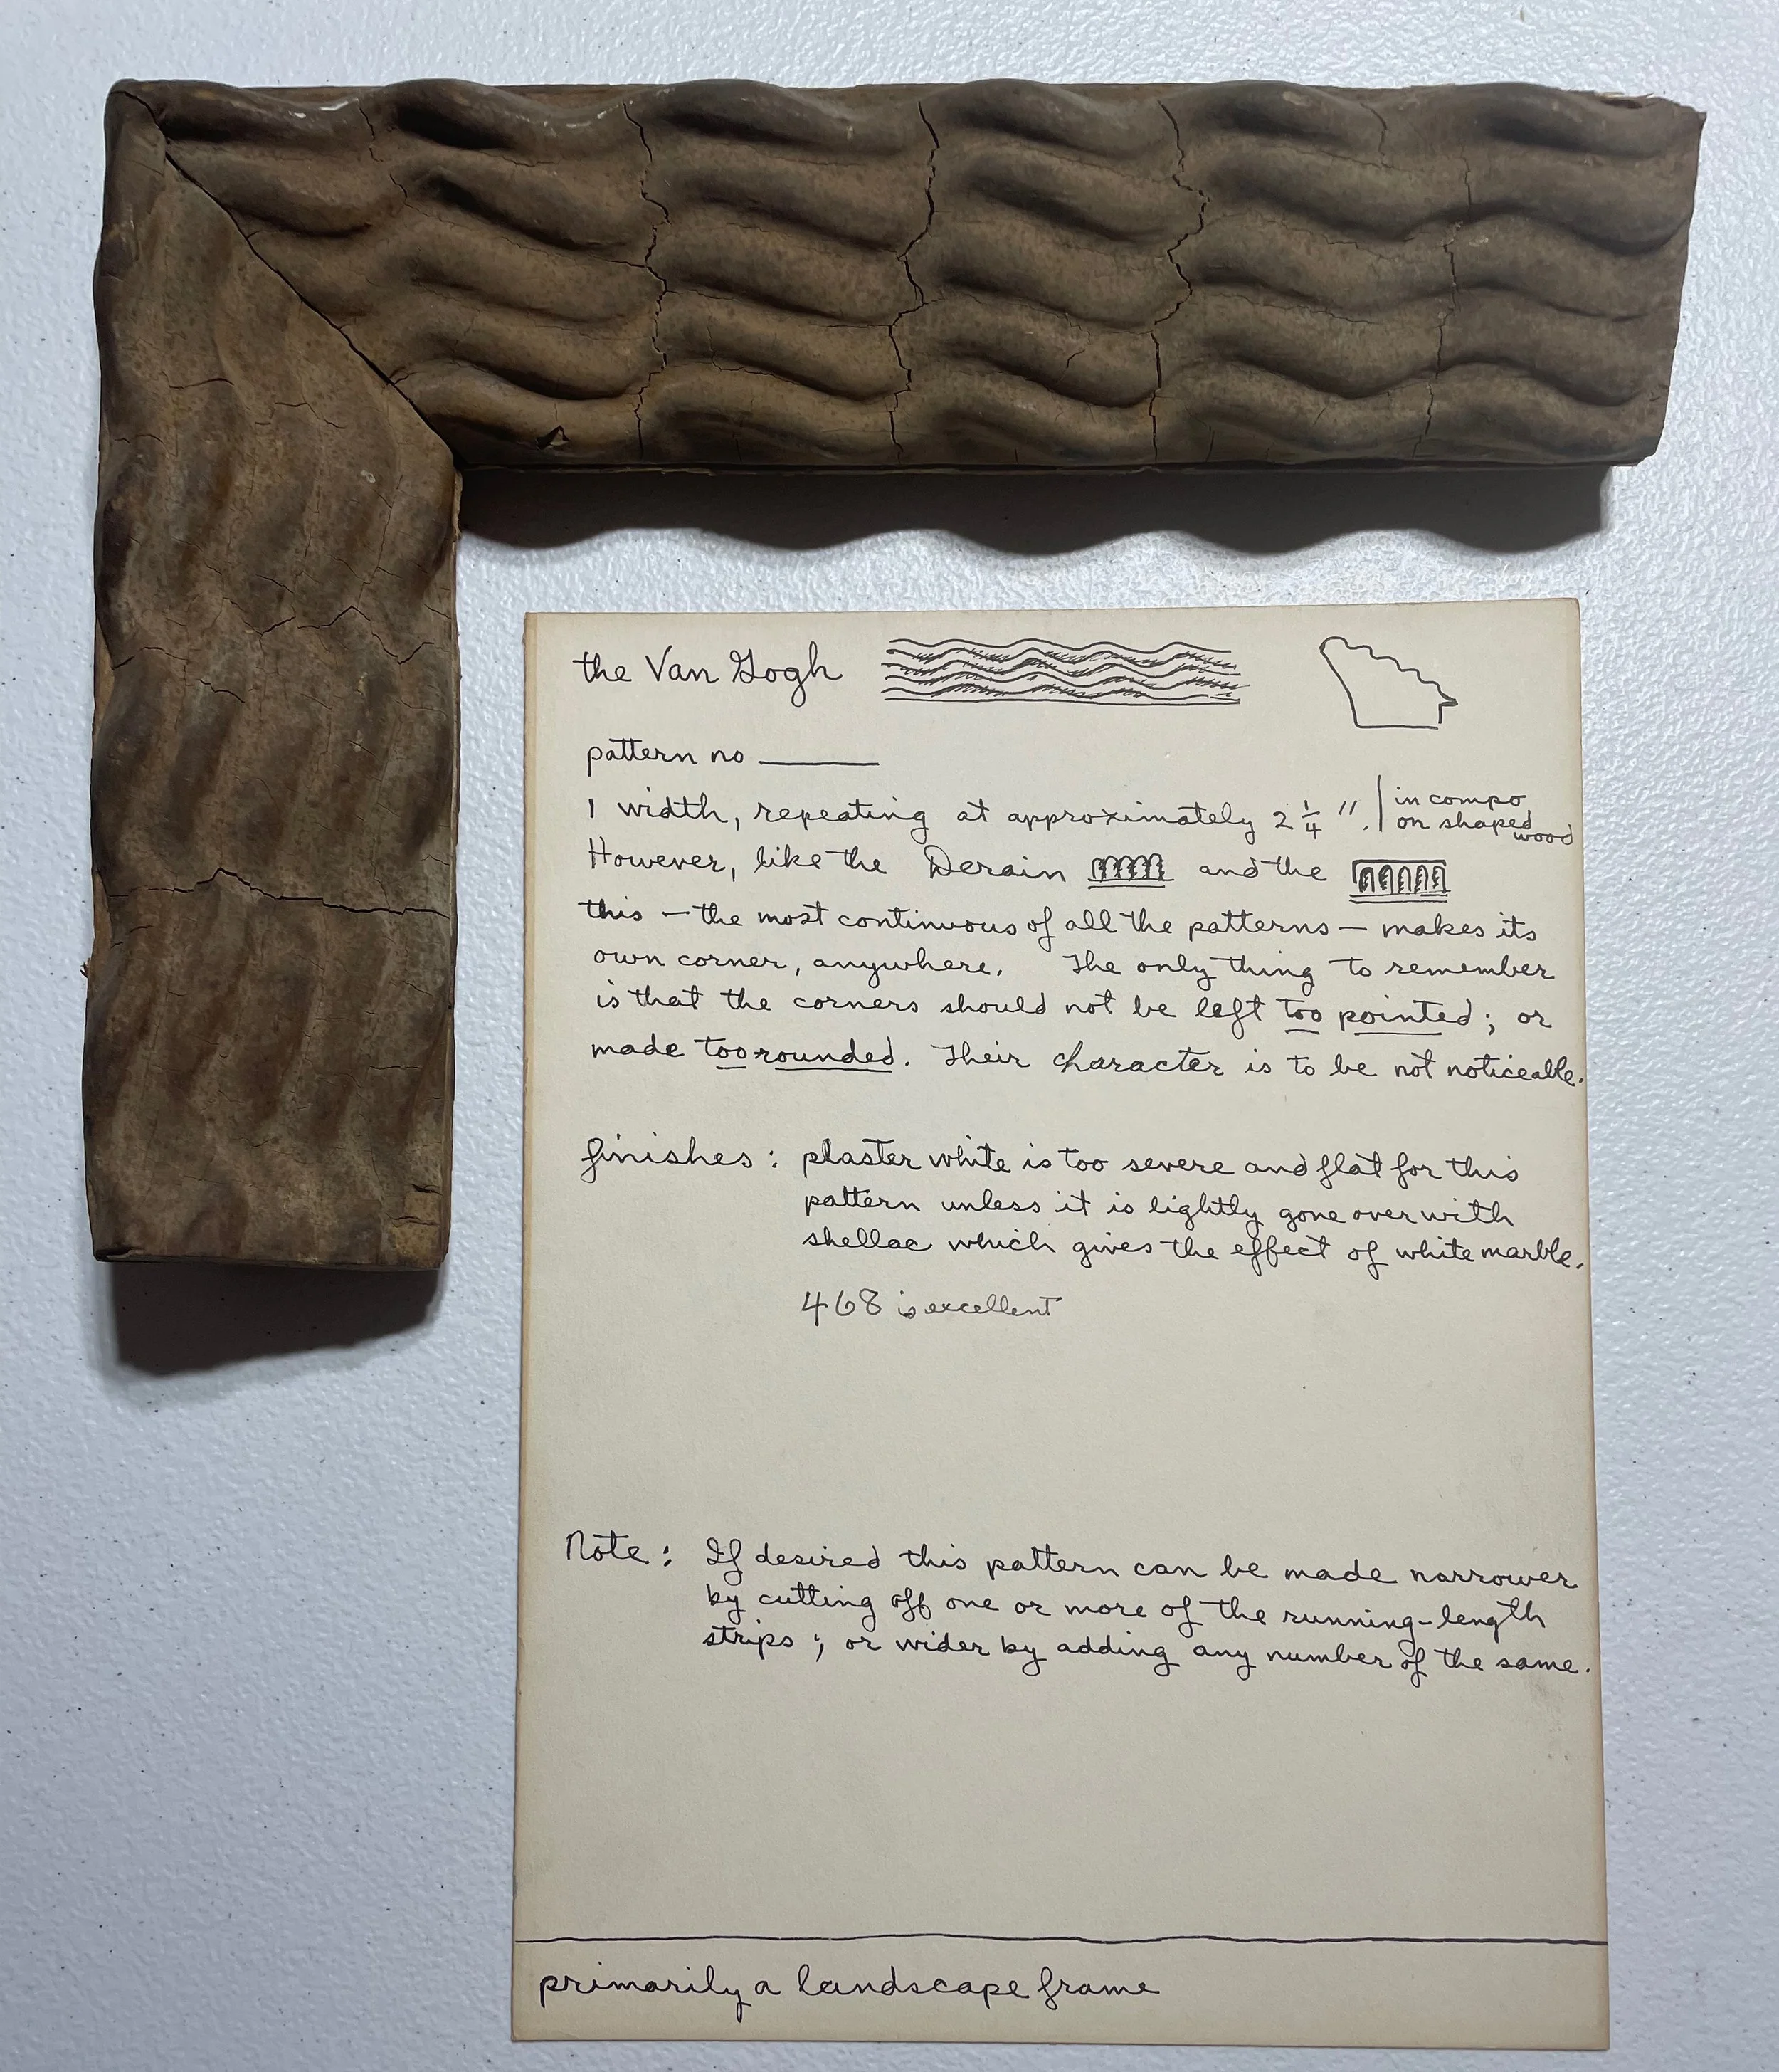 the Van Gogh
pattern no
1 width, repeating at approximately 2 1/4 ". in compo
on shaped wood
However, like the Derain and the
this – the most continuous of all the patterns – makes its
own corner, anywhere. The only thing to remember
is that the corners should not be left too pointed; or
made too rounded. Their character is to be not noticeable.
finishes: plaster white is too severe and flat for this
pattern unless it is lightly gone over with
shellac which gives the effect of white marble.
468 is excellent
Note: If desired this pattern can be made narrower
by cutting off one or more of the running-length
strips; or wider by adding any number of the same.
primarily a landscape frame